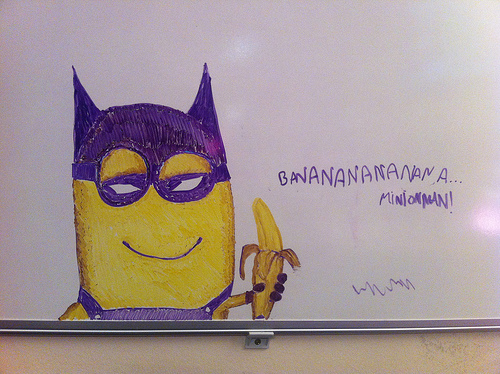 BANANANANANANA...
MINIONMAN!